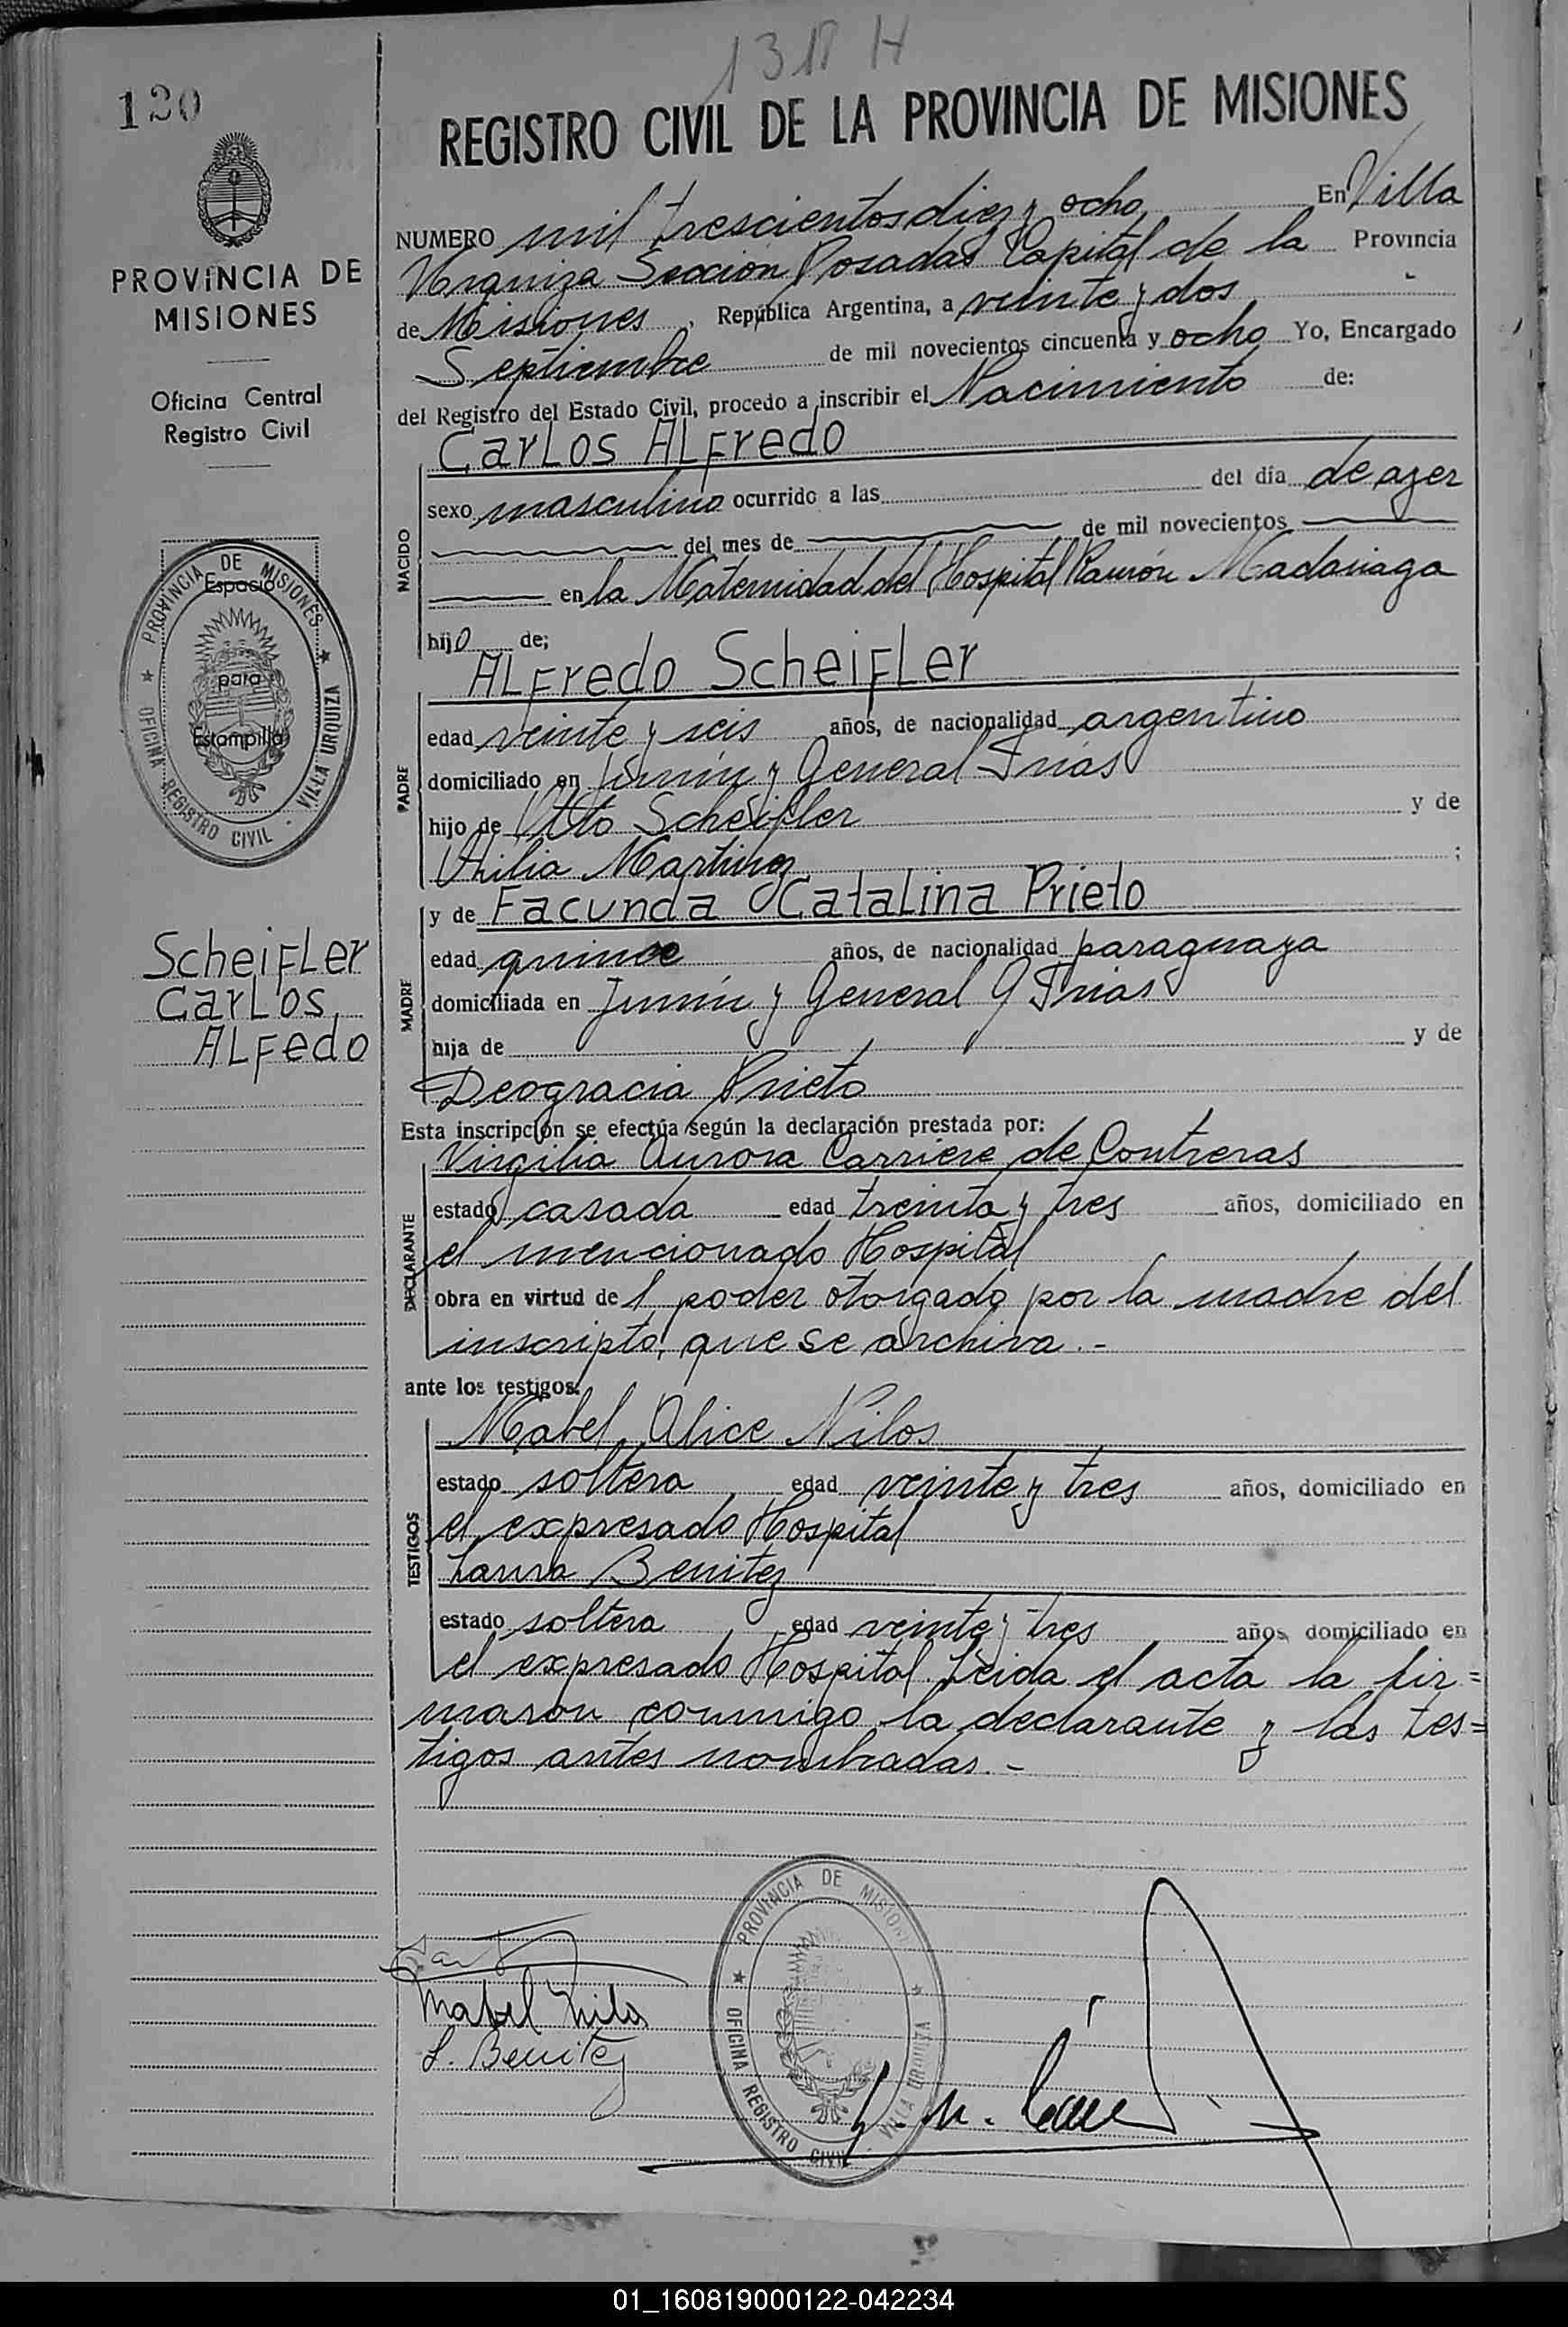 1318 H
120
REGISTRO CIVIL DE LA PROVINCIA DE MISIONES
PROVINCIA DE
MISIONES
Oficina Central
Registro Civil
PROVINCIA DE MISIONES
OFICINA REGISTRO CIVIL - VILLA URQUIZA
Espacio
para
Estampilla
Scheifler
Carlos
Alfedo
NUMERO mil trescientos diez y ocho En Villa
Urquiza Sección Posadas Capital de la Provincia
de Misiones, República Argentina, a veinte y dos
Septiembre de mil novecientos cincuenta y ocho Yo, Encargado
del Registro del Estado Civil, procedo a inscribir el Nacimiento de:
Carlos Alfredo
NACIDO
sexo masculino ocurrido a las del día de ayer
del mes de de mil novecientos
en la Maternidad del Hospital Ramón Madariaga
hijo de;
Alfredo Scheifler
PADRE
edad veinte y seis años, de nacionalidad argentino
domiciliado en Junín y General Frías
hijo de Otto Scheifler y de
Martinez;
y de Facunda Catalina Prieto
MADRE
edad quince años, de nacionalidad paraguaya
domiciliada en Junín y General Frías
hija de y de
Deogracia Prieto
Esta inscripción se efectúa según la declaración prestada por:
Virgilia Aurora Carriere de Contreras
DECLARANTE
estado casada edad treinta y tres años, domiciliado en
el mencionado Hospital
obra en virtud del poder otorgado por la madre del
inscripto, que se archiva.-
ante los testigos:
Mabel Alice Nilos
TESTIGOS
estado soltera edad veinte y tres años, domiciliado en
el expresado Hospital
Laura Benitez
estado soltera edad veinte y tres años, domiciliado en
el expresado Hospital. Leida el acta la fir=
maron conmigo la declarante y las tes=
tigos antes nombradas.-
Mabel Nilos
L. Benitez
PROVINCIA DE MISIONES
OFICINA REGISTRO CIVIL - VILLA URQUIZA
01_160819000122-042234